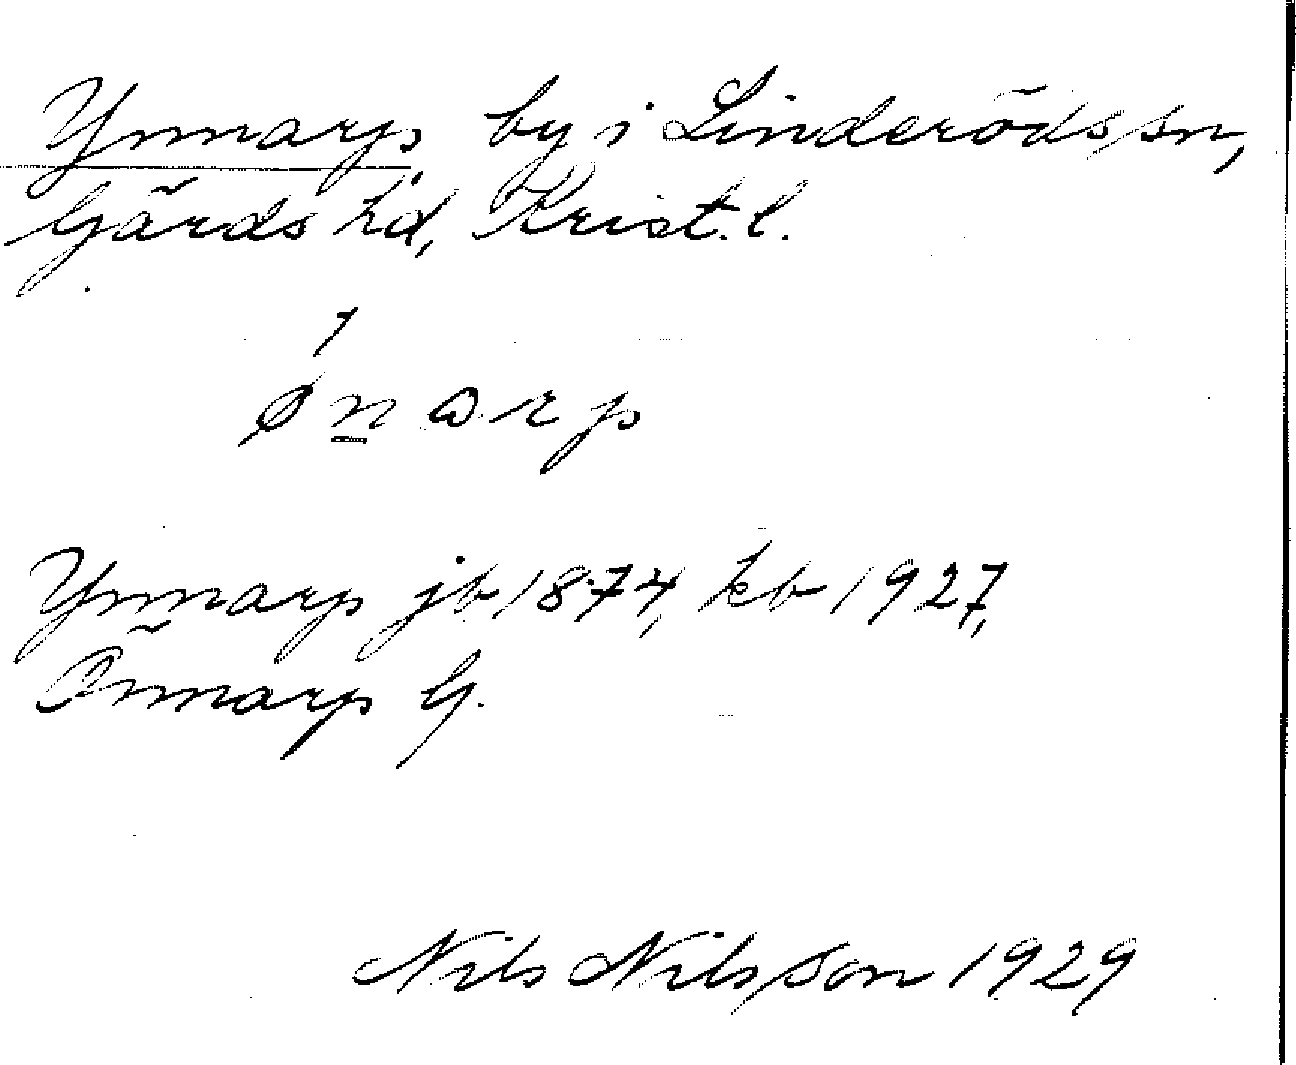 Ynnarp by i Linderöds sn,
Gärds hd, Krist. l.
ønarp
Ynnarp jb 1874, kb 1927,
Önnarp G.
Nils Nilsson 1929